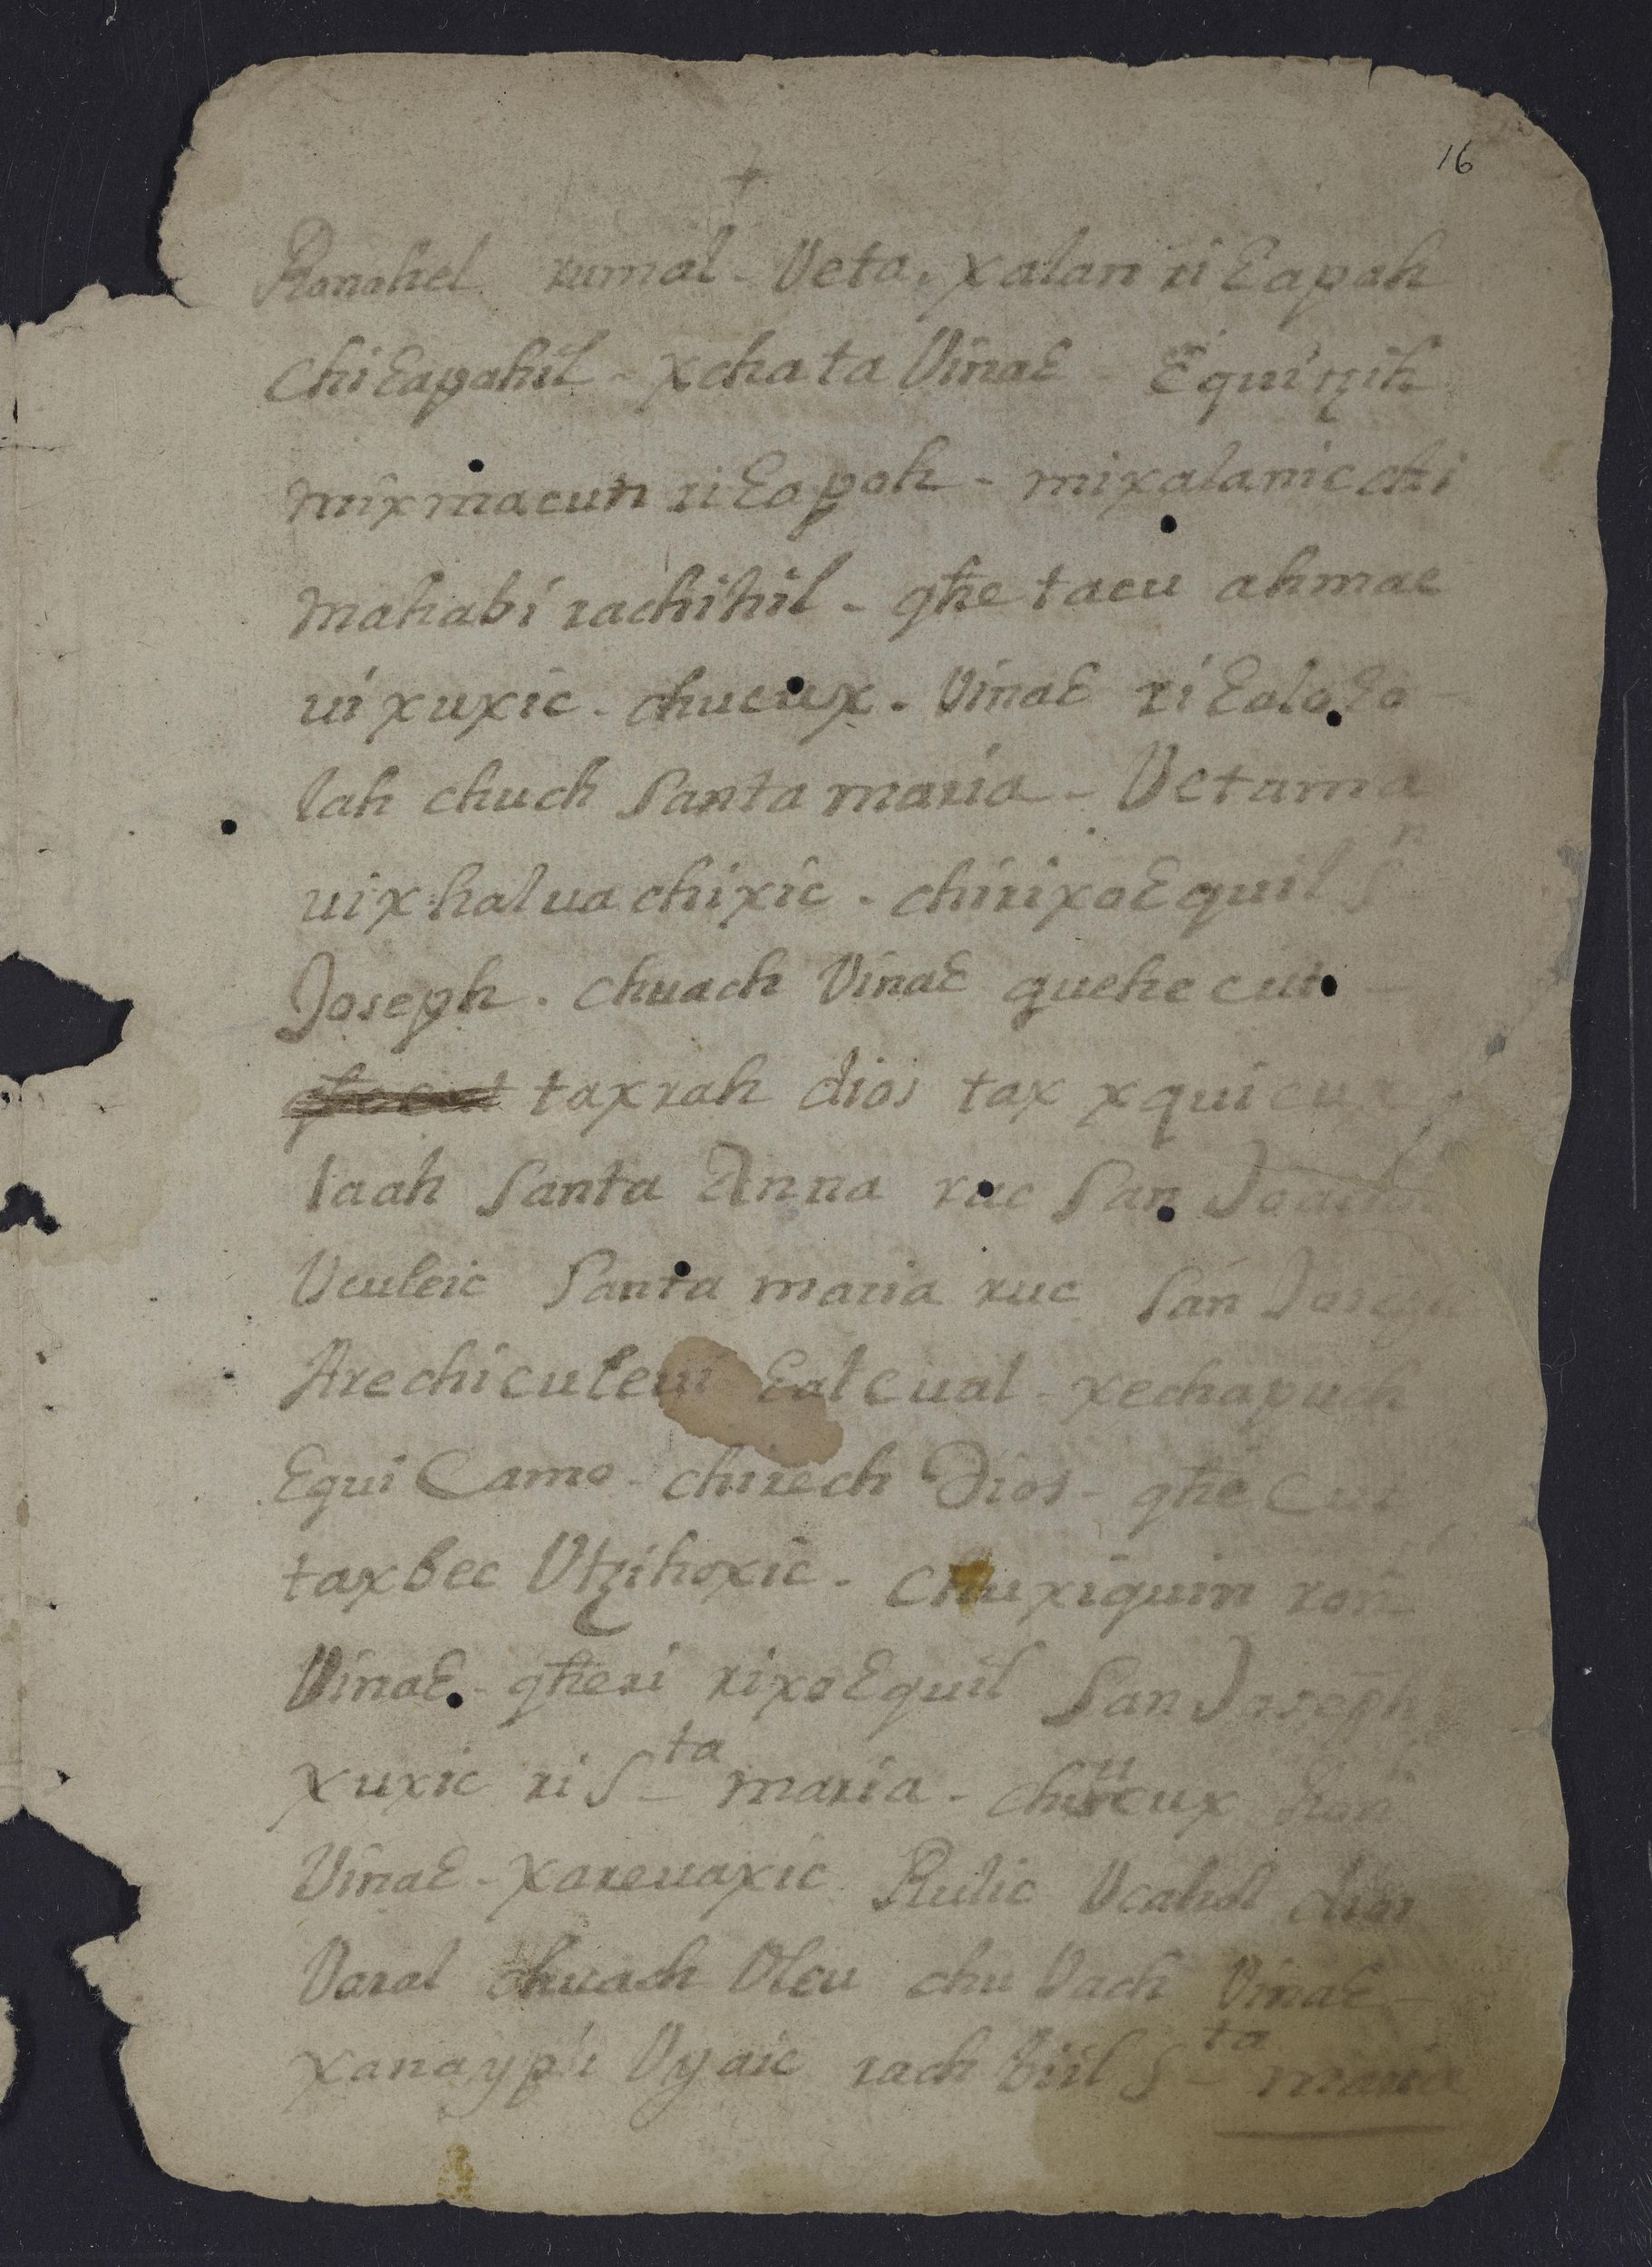 16
+
Ronohel rumal - Veta. xalan ri Ɛapoh
chiƐapohil - xcha ta VinaƐ - Ɛquitzih
mixmacun ri Ɛapoh - mixalanic chi
mahabi rachihil - qħe tacu ahmac
ui xuxic - chucux. VinaƐ ri ƐaloƐo
lah chuch Santa maria - Vetama
uixhaluachixic. chirixoƐquil Sⁿ
Joseph. chuach VinaƐ quehe cut -
taxrah dios tax xquicux
laah Santa Anna ruc San
Vculeic Santa maria ruc San Joseph
Arechiculeui Ɛalcual - xechapuch
Ɛqui Camo - chirech Dios - qħe Cut
taxbec Vtzihoxic - chuxiquin ron
VinaƐ - qħeri rixoƐquil San Joseph
xuxic ri Sᵗᵃ maria - chucux Ron
VinaƐ - xareuaxic Rulic Vcahol dios
Varal chuach Vleu chu Vach VinaƐ -
xanaypi Vyaic rach biil Sᵗᵃ maria